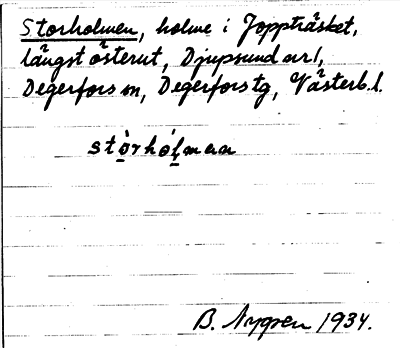 Storholmen, holme i Joppträsket,
längst österut, Djupsund arr1,
Degerfors sn, Degerfors tg, Västerb. l.
stòrhól̥men
B. Nygren 1934.